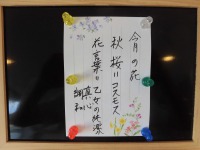 今月の花
秋桜=コスモス
花言葉=乙女の純潔
真心
調和